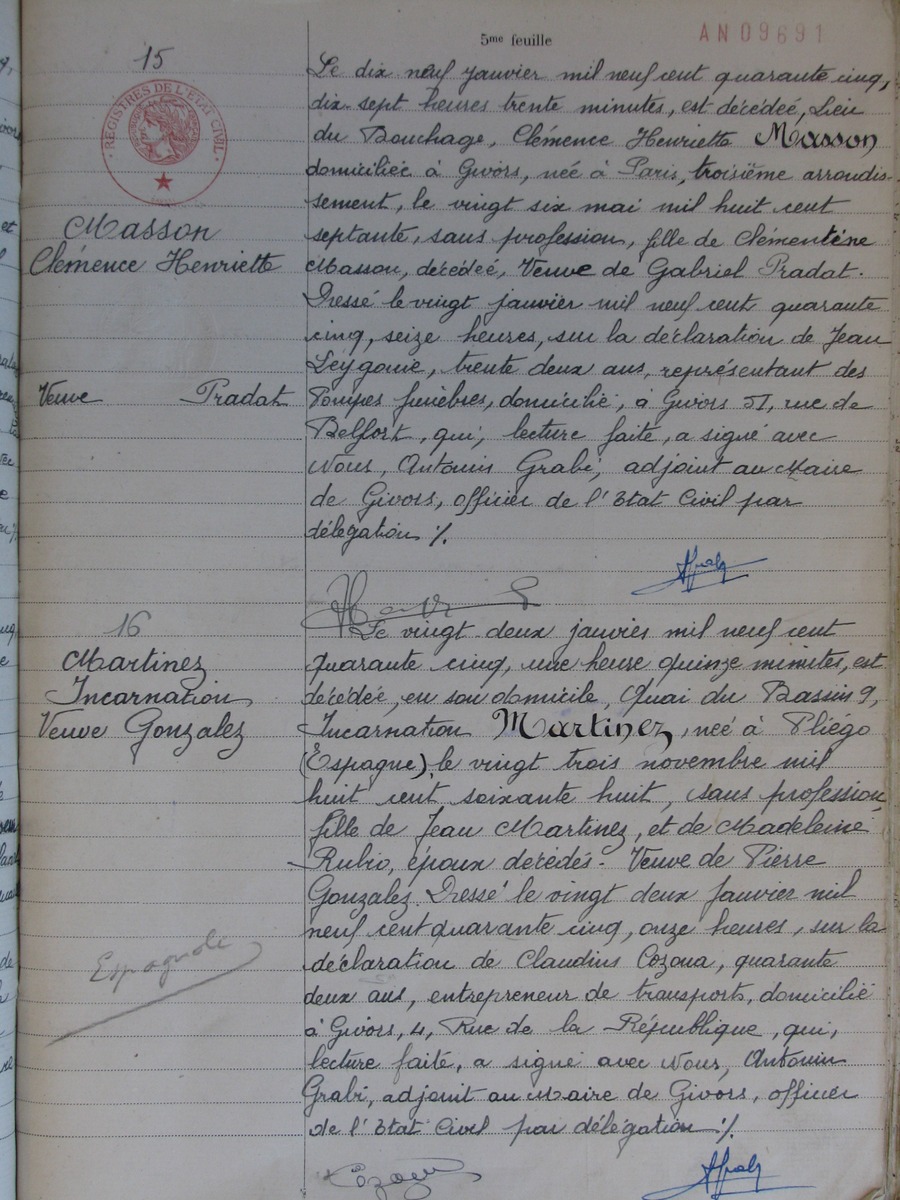 5me feuille
AN09691
15
REGISTRES DE L'ETAT CIVIL
Masson
Clémence Henriette
Veuve Pradat
Le dix neuf janvier mil neuf cent quarante cinq,
dix sept heures trente minutes, est décédée, Lieu
du Bouchage, Clémence Henriette Masson
domiciliée à Givors, née à Paris, troisième arrondis-
sement, le vingt six mai mil huit cent
septante, sans profession, fille de Clémentine
Masson, décédée, Veuve de Gabriel Pradat.
Dressé le vingt janvier mil neuf cent quarante
cinq, seize heures, sur la déclaration de Jean
Leygonie, trente deux ans, représentant des
Pompes funèbres, domicilié, à Givors 51, rue de
Belfort, qui, lecture faite, a signé avec
Nous, Antonin Grabi, adjoint au Maire
de Givors, officier de l'Etat Civil par
délégation ./.
16
Martinez
Incarnation
Veuve Gonzalez
Espagnole
Le vingt deux janvier mil neuf cent
quarante cinq, une heure quinze minutes, est
décédée, en son domicile, Quai du Bassin 9,
Incarnation Martinez, née à Pliégo
(Espagne), le vingt trois novembre mil
huit cent soixante huit, sans profession,
fille de Jean Martinez, et de Madeleine
Rubio, époux décédés - Veuve de Pierre
Gonzalez. Dressé le vingt deux Janvier mil
neuf cent quarante cinq, onze heures, sur la
déclaration de Claudius Cozona, quarante
deux ans, entrepreneur de transports, domicilié
à Givors, 4, Rue de la République, qui,
lecture faite, a signé avec Nous, Antonin
Grabi, adjoint au Maire de Givors, officier
de l'Etat Civil par délégation ./.